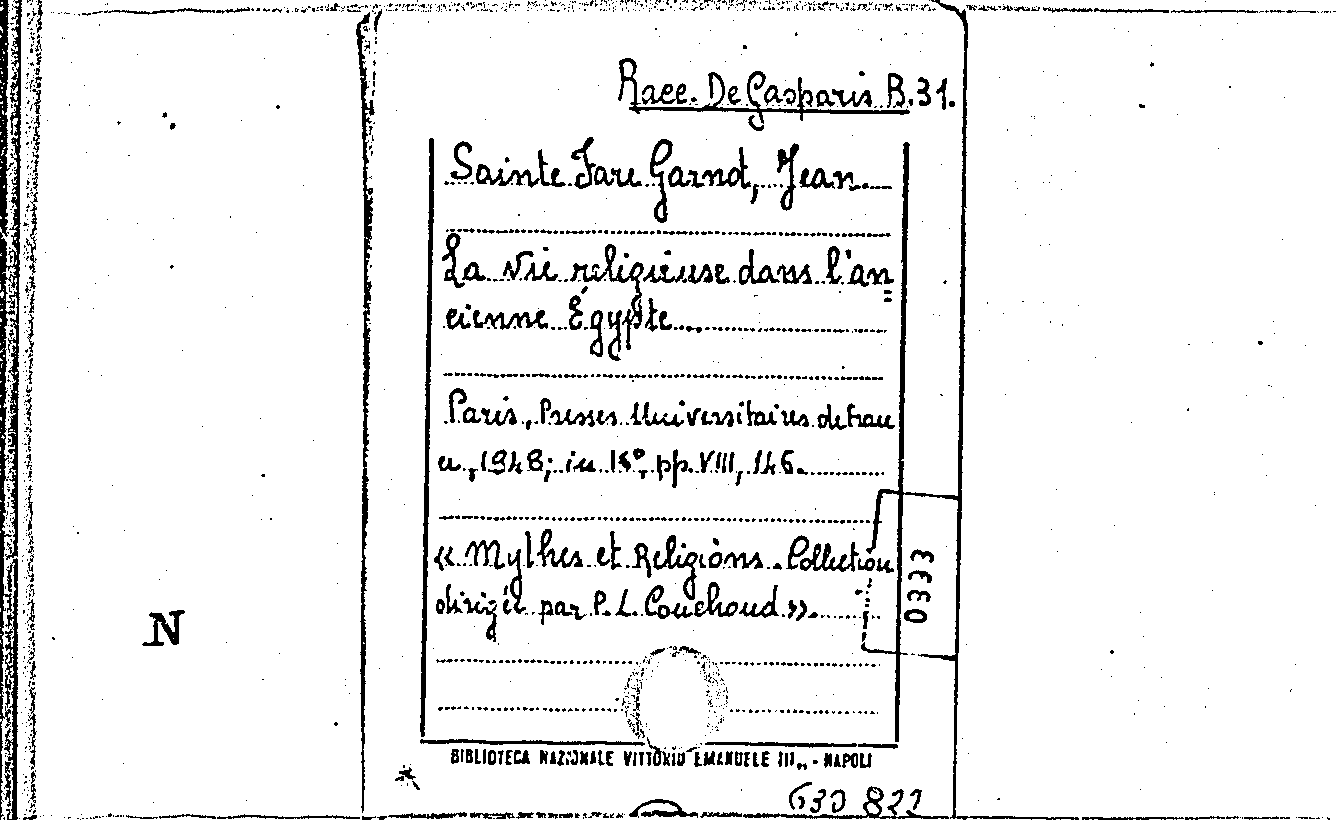 Racc. De Gasparis B.31.
Sainte Fare Garnot, Jean.
La vie religieuse dans l'an=
cienne Égypte...
Paris, Presses Universitaires de Fran
ce, 1948; in 16°, pp. VIII, 146.
« Mythes et Religions. Collection
dirigée par P. L. Couchoud ».
0333
N
BIBLIOTECA NAZIONALE VITTORIO EMANUELE III,, - NAPOLI
630 822